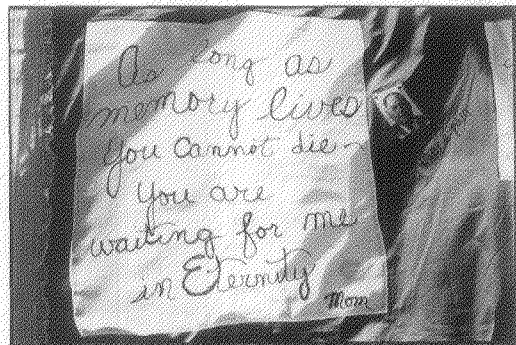 As long as
memory lives
you cannot die~
you are
waiting for me
in Eternity
Mom